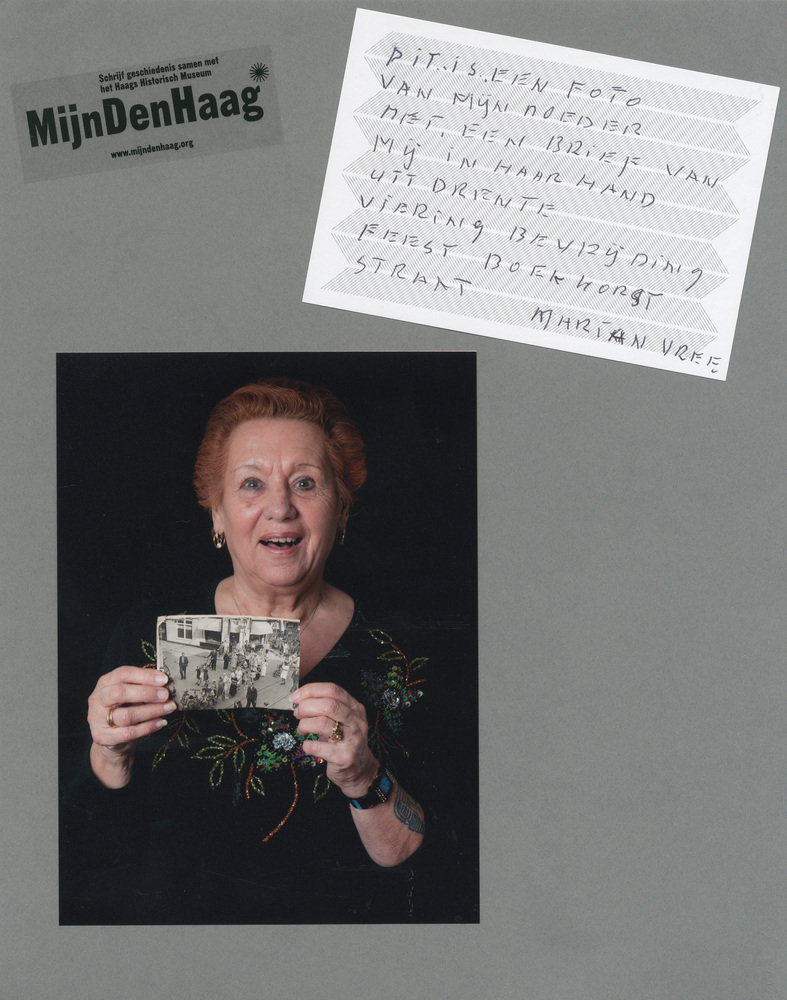 Schrijf geschiedenis samen met
het Haags Historisch Museum
MijnDenHaag
www.mijndenhaag.org
DIT..IS..EEN FOTO
VAN MIJN MOEDER
MET. EEN BRIEF VAN
MIJ IN HAAR HAND
UIT DRENTE
VIERING BEVRIJDING
FEEST BOEKHORST
STRAAT
MARIAN VREE